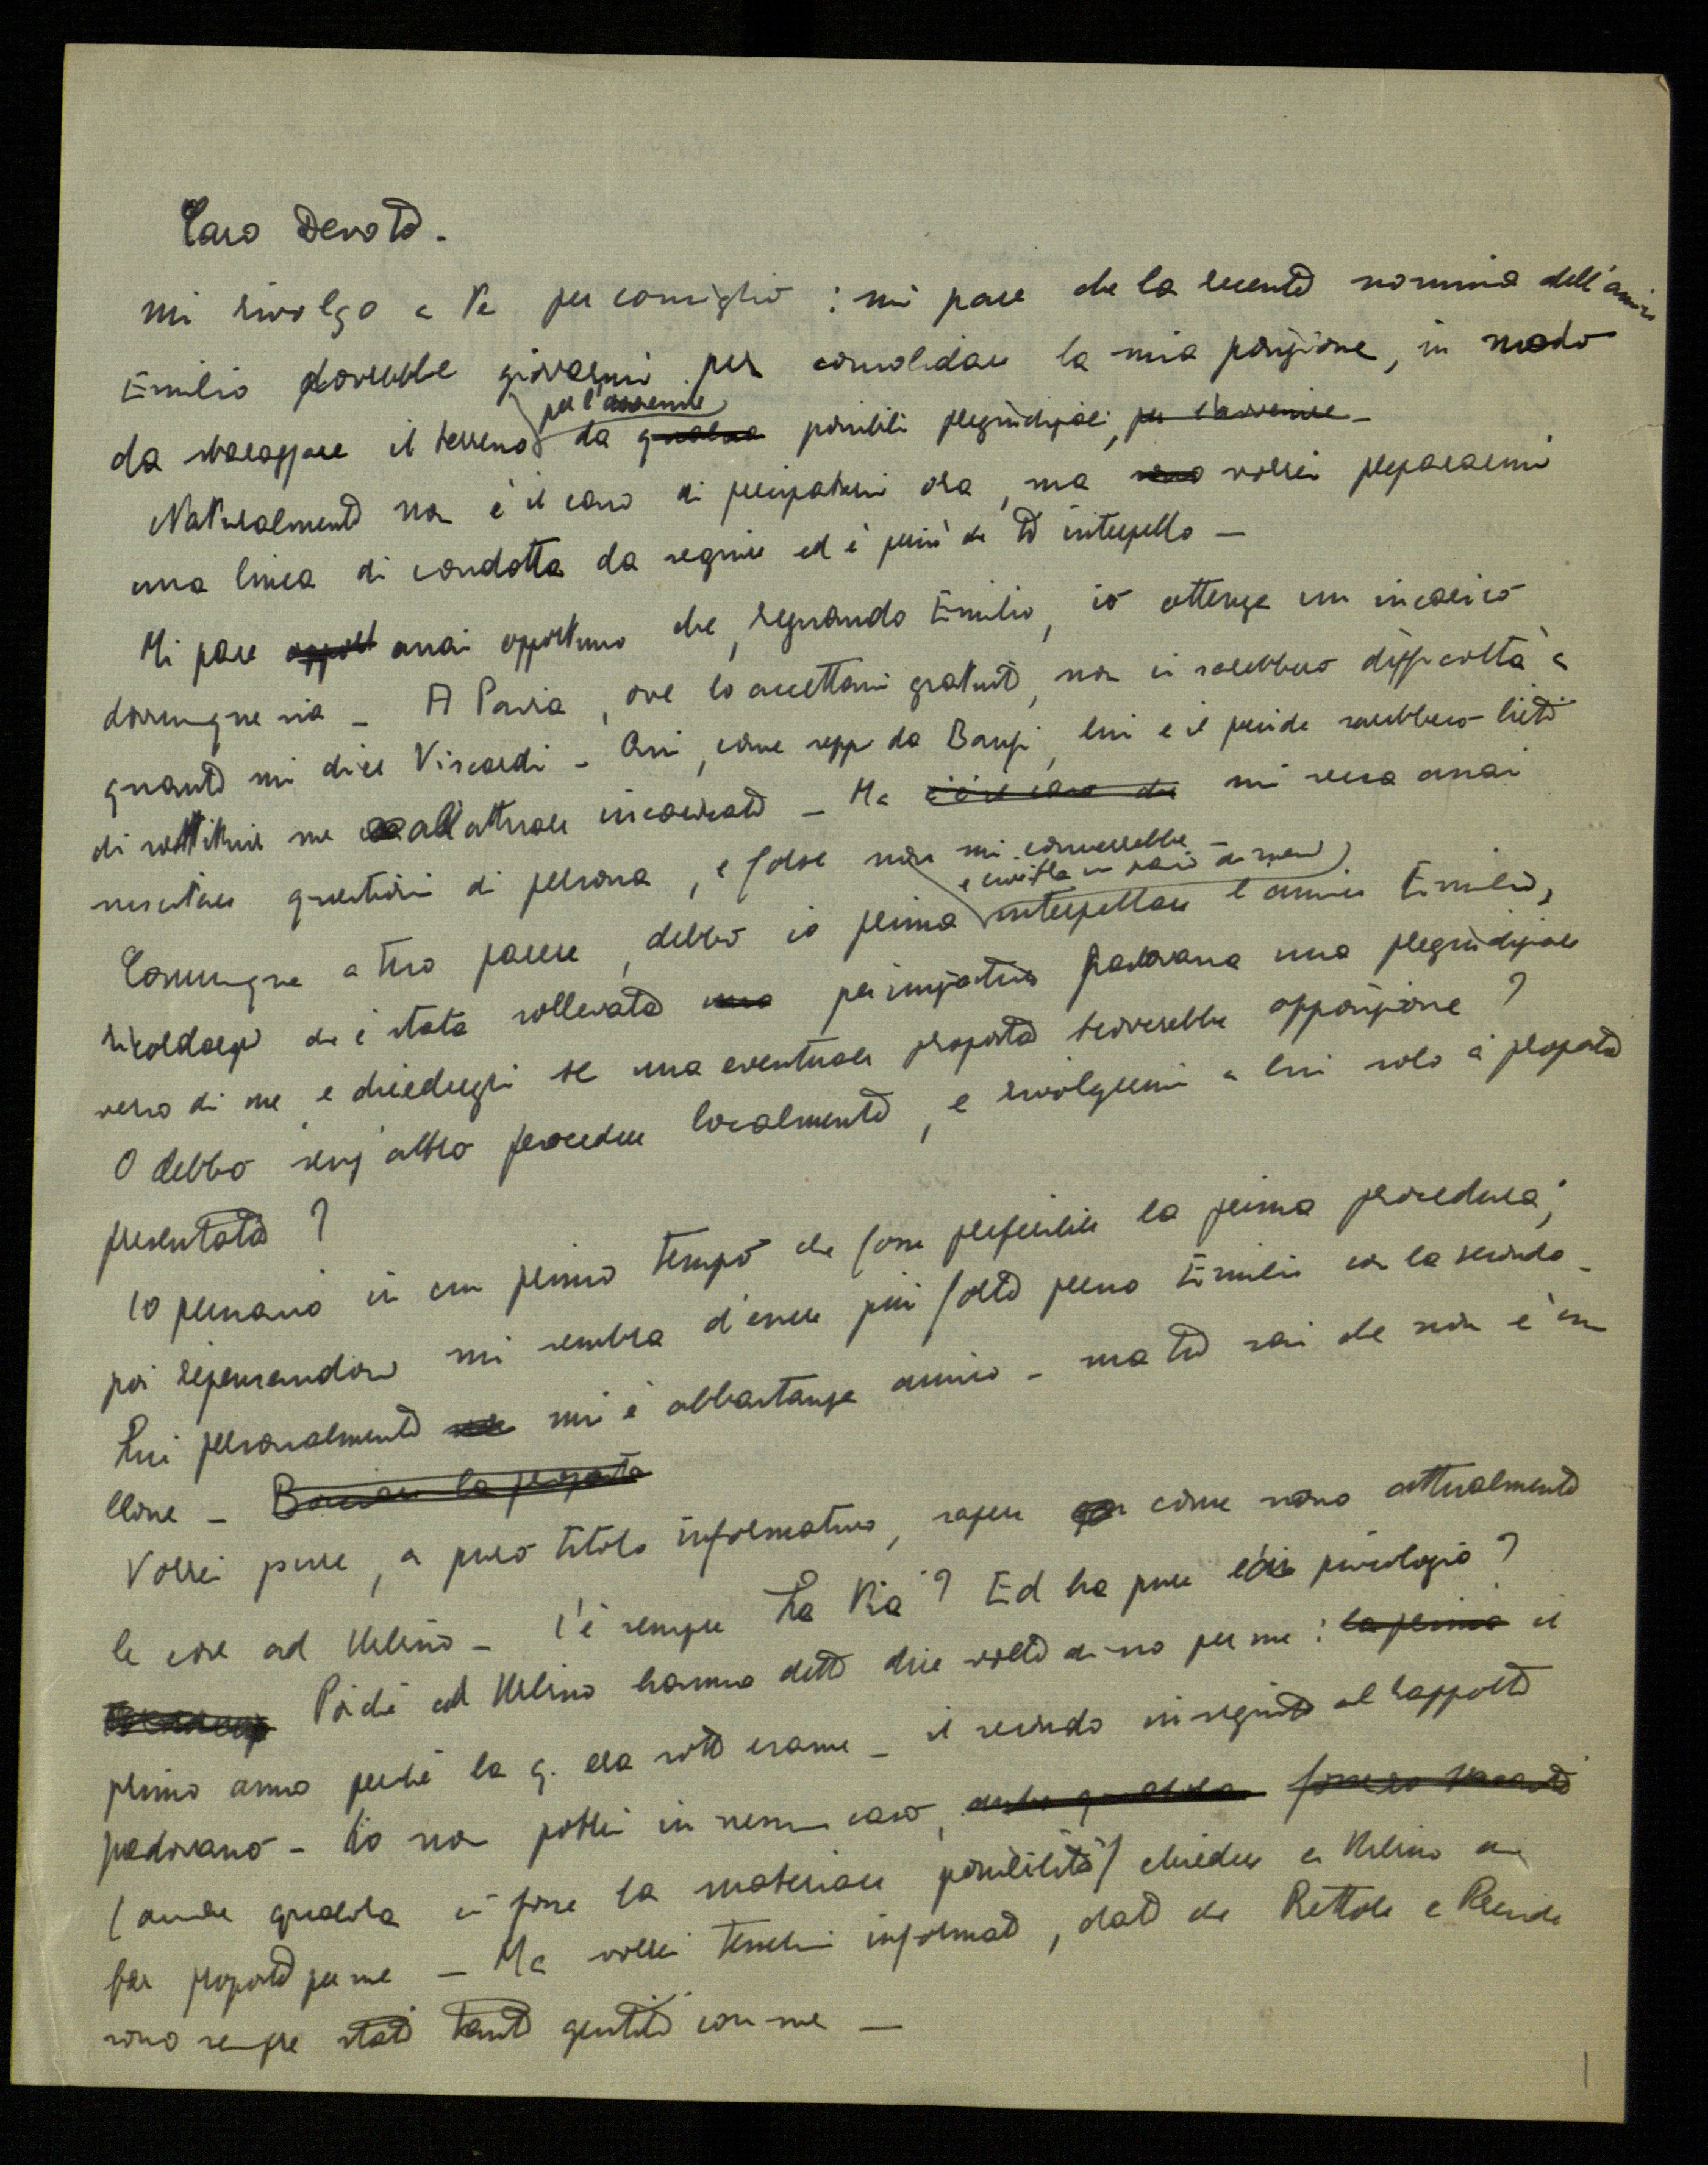 Caro Devoto.
mi rivolgo a te per consiglio: mi pare che la recente nomina dell'amico
Emilio dovrebbe giovarmi per consolidare la mia posizione, in modo
per l'avvenire
da sbarazzare il terreno da qualche possibili pregiudiziali, per l'avvenire -
Naturalmente non è il caso di precipitarsi ora, ma vorrei prepararmi
una linea di condotta da seguire ed è perciò che ti interpello -
Mi pare opport assai opportuno che, regnando Emilio, io ottenga un incarico
dovunque sia - A Pavia, ove lo accettassi gratuito, non ci sarebbero difficoltà a
quanto mi dice Viscardi - Qui, come seppi da Banfi, lui e il preside sarebbero lieti
di sostituire me all'attuale incaricato - Ma c'è il caso che mi secca assai
suscitare questioni di persona, e forse non mi converrebbe
Comunque a tuo parere, debbo io prima interpellare l'amico Emilio,
ricordargli che è stata sollevata una per iniziativa padovana una pregiudiziale
verso di me, e chiedergli se una eventuale proposta troverebbe opposizione?
O debbo senz'altro procedere localmente, e rivolgermi a lui solo a proposta
presentata?
Io pensavo in un primo tempo che fosse preferibile la prima procedura;
poi ripensandoci mi sembra d'essere più forte presso Emilio con la seconda -
Lui personalmente mi è abbastanza amico - ma tu sai che non è un
leone - Bocciare la proposta
Vorrei pure, a puro titolo informativo, sapere come vanno attualmente
le cose ad Urbino - C'è sempre La Via? Ed ha pure psicologia?
Poiché ad Urbino hanno detto due volte di no per me: la prima il
primo anno perché la q. era sotto esame - il secondo in seguito al rapporto
padovano - Io non potrei in nessun caso, anche qualora fossero vacanti
(anche qualora ci fosse la materiale possibilità) chiedere a Urbino di
far proposte per me - Ma vorrei tenermi informato, dato che Rettore e Preside
sono sempre stati tanto gentili con me -
1